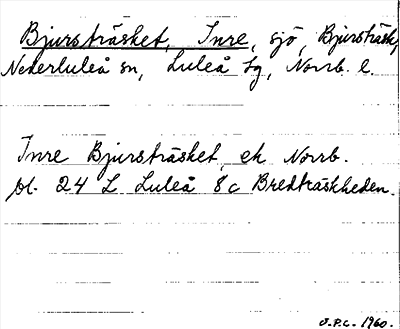 Bjursträsket, Inre, sjö, Bjursträsk,
Nederluleå sn, Luleå tg, Norrb. l.
Inre Bjursträsket, ek Norrb.
bl. 24 L Luleå 8c Bredträskheden.
O.P.C. 1960.